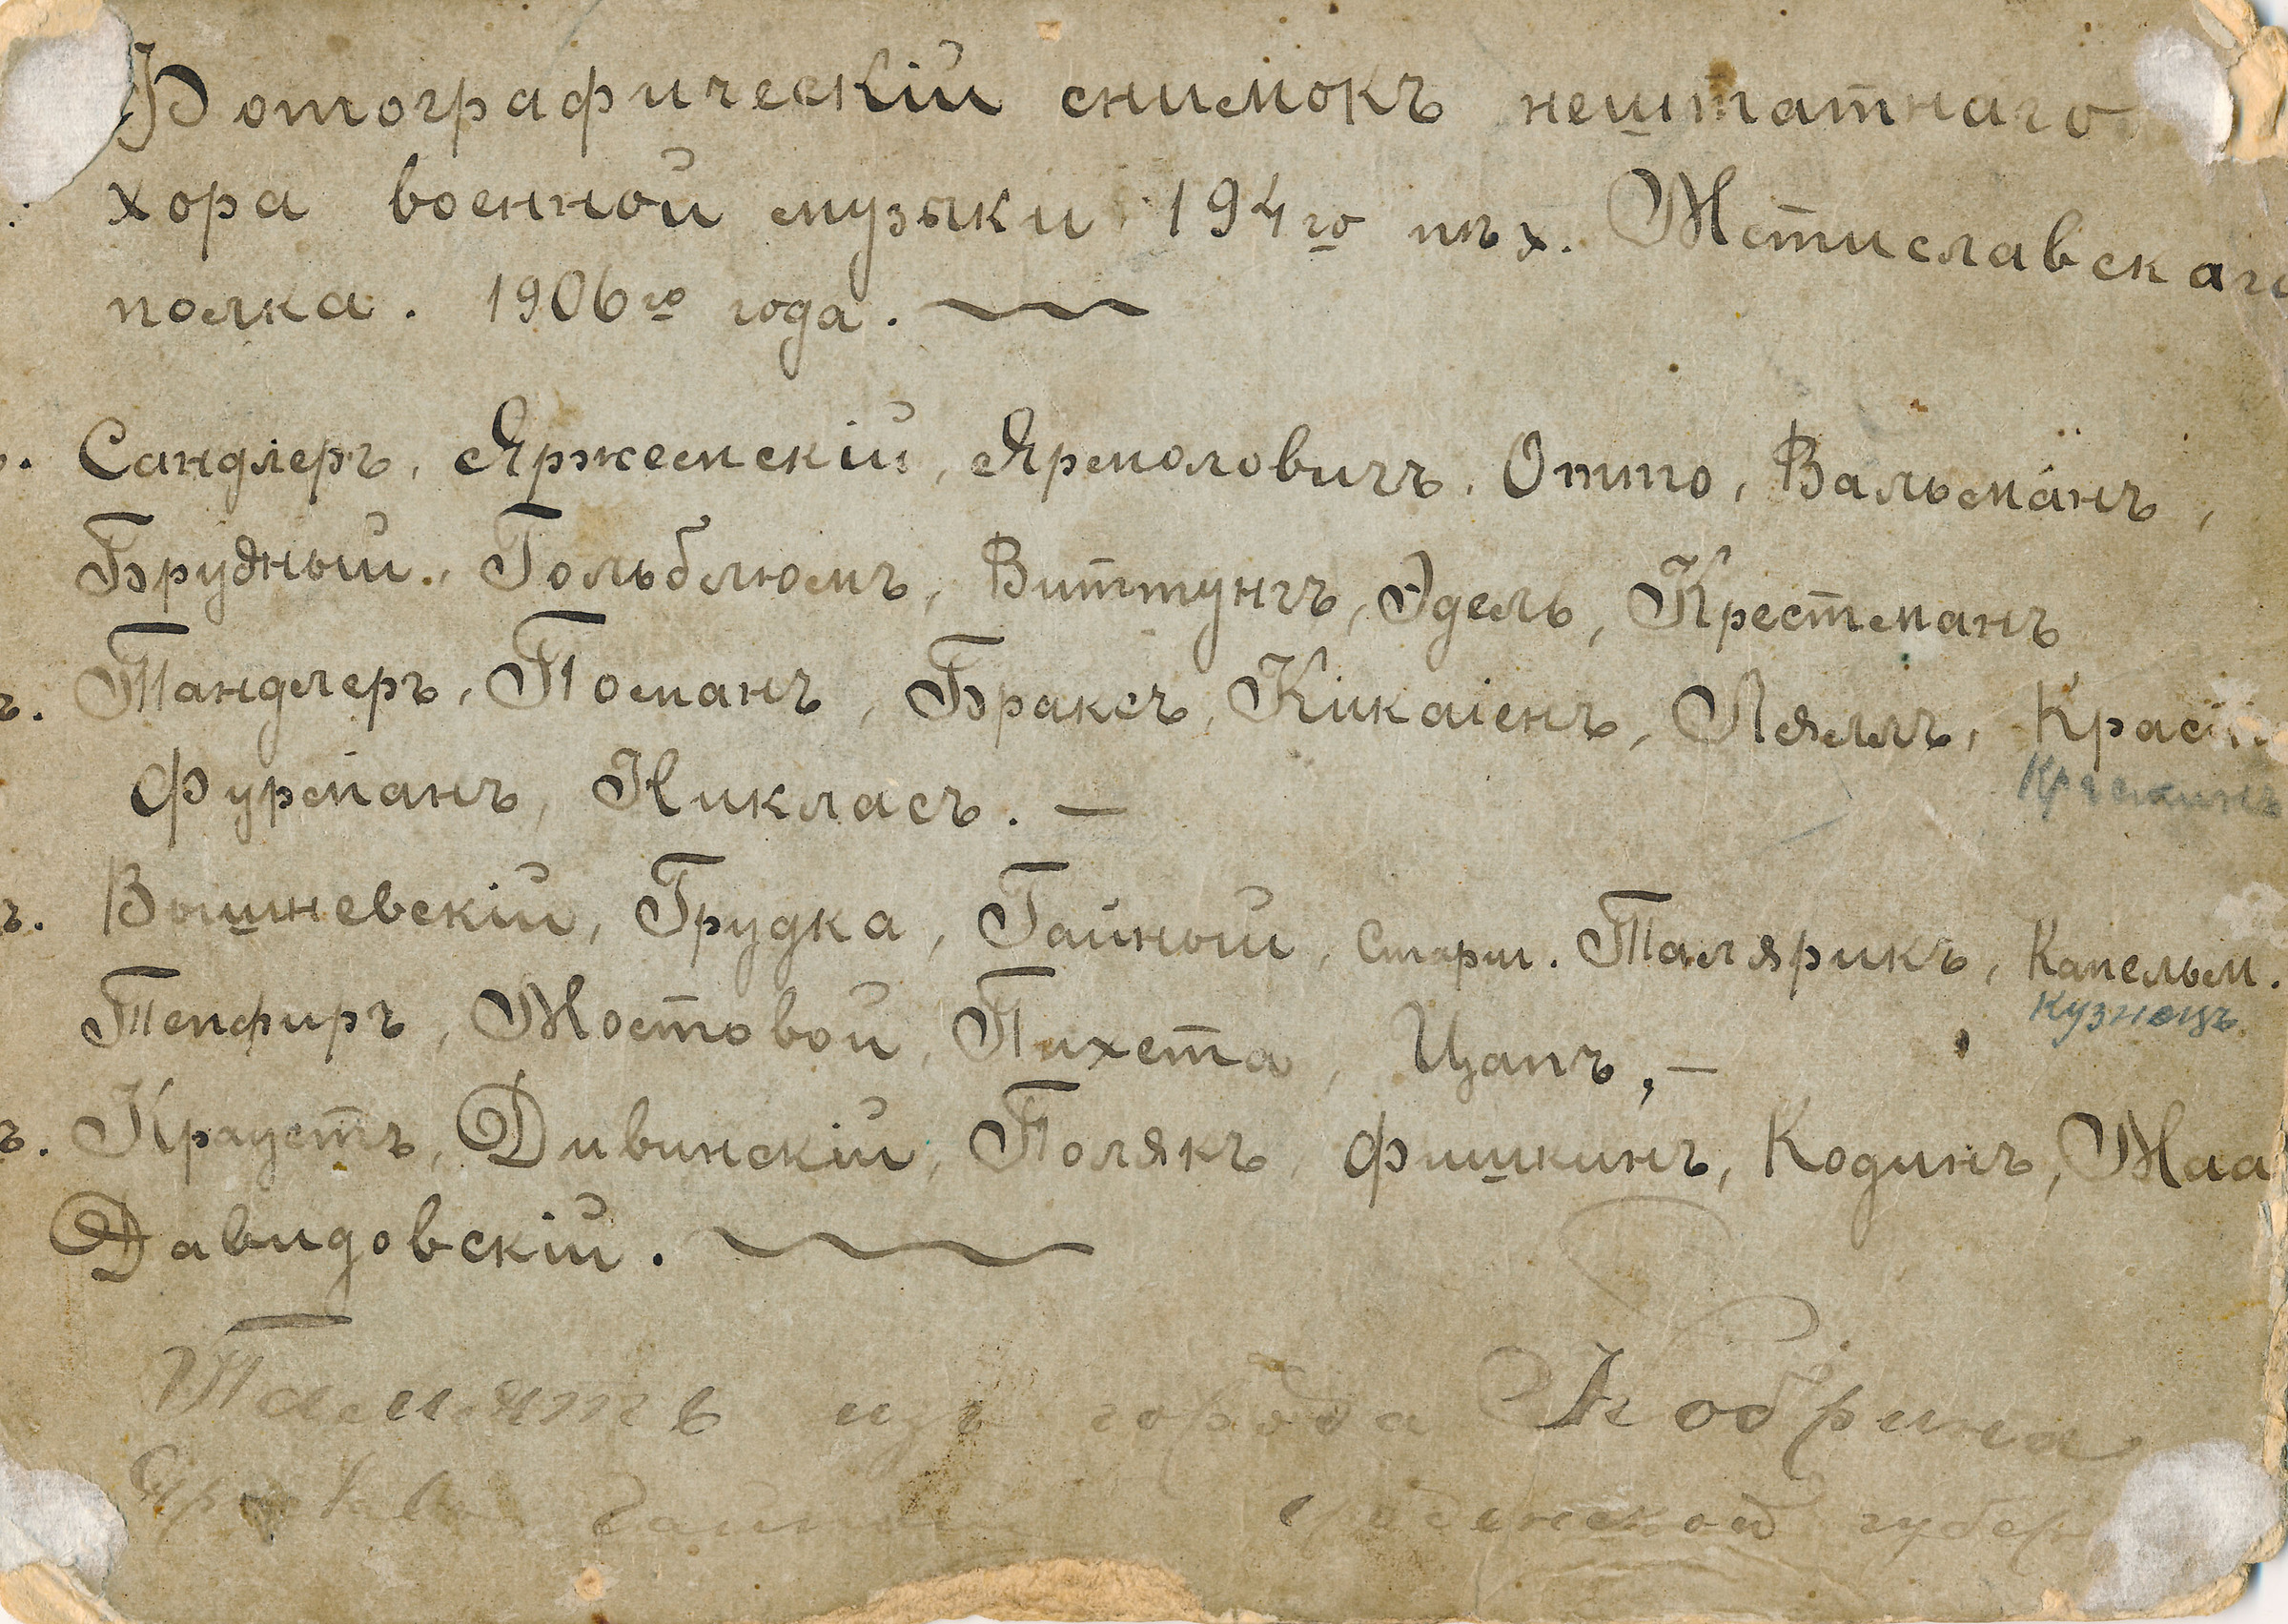 Фотографическiй снимокъ нештатнаго
хора военной музыки 194го пѣх. Мстиславскаго
полка. 1906го года.
Сандлеръ, Яржемскiй, Ярмоловичъ, Отто, Вальманъ,
Брудный, Гольблюмъ, Виттунгъ, Эдель, Крестманъ
Тандлеръ, Поманъ, Браксъ, Кикаiенъ, Лялль,
Фурманъ, Никласъ. —
Вышневскiй, Грудка, Гайный, Старш. Талярикъ, Капельм.
Кузнецъ
Тепфиръ, Мостовой, Пихета, Цапъ, —
Краустъ, Дивинскiй, Полякъ, Фишкинъ, Кодинъ, Маа
Давидовскiй.
Память изъ города Кобрина
губер